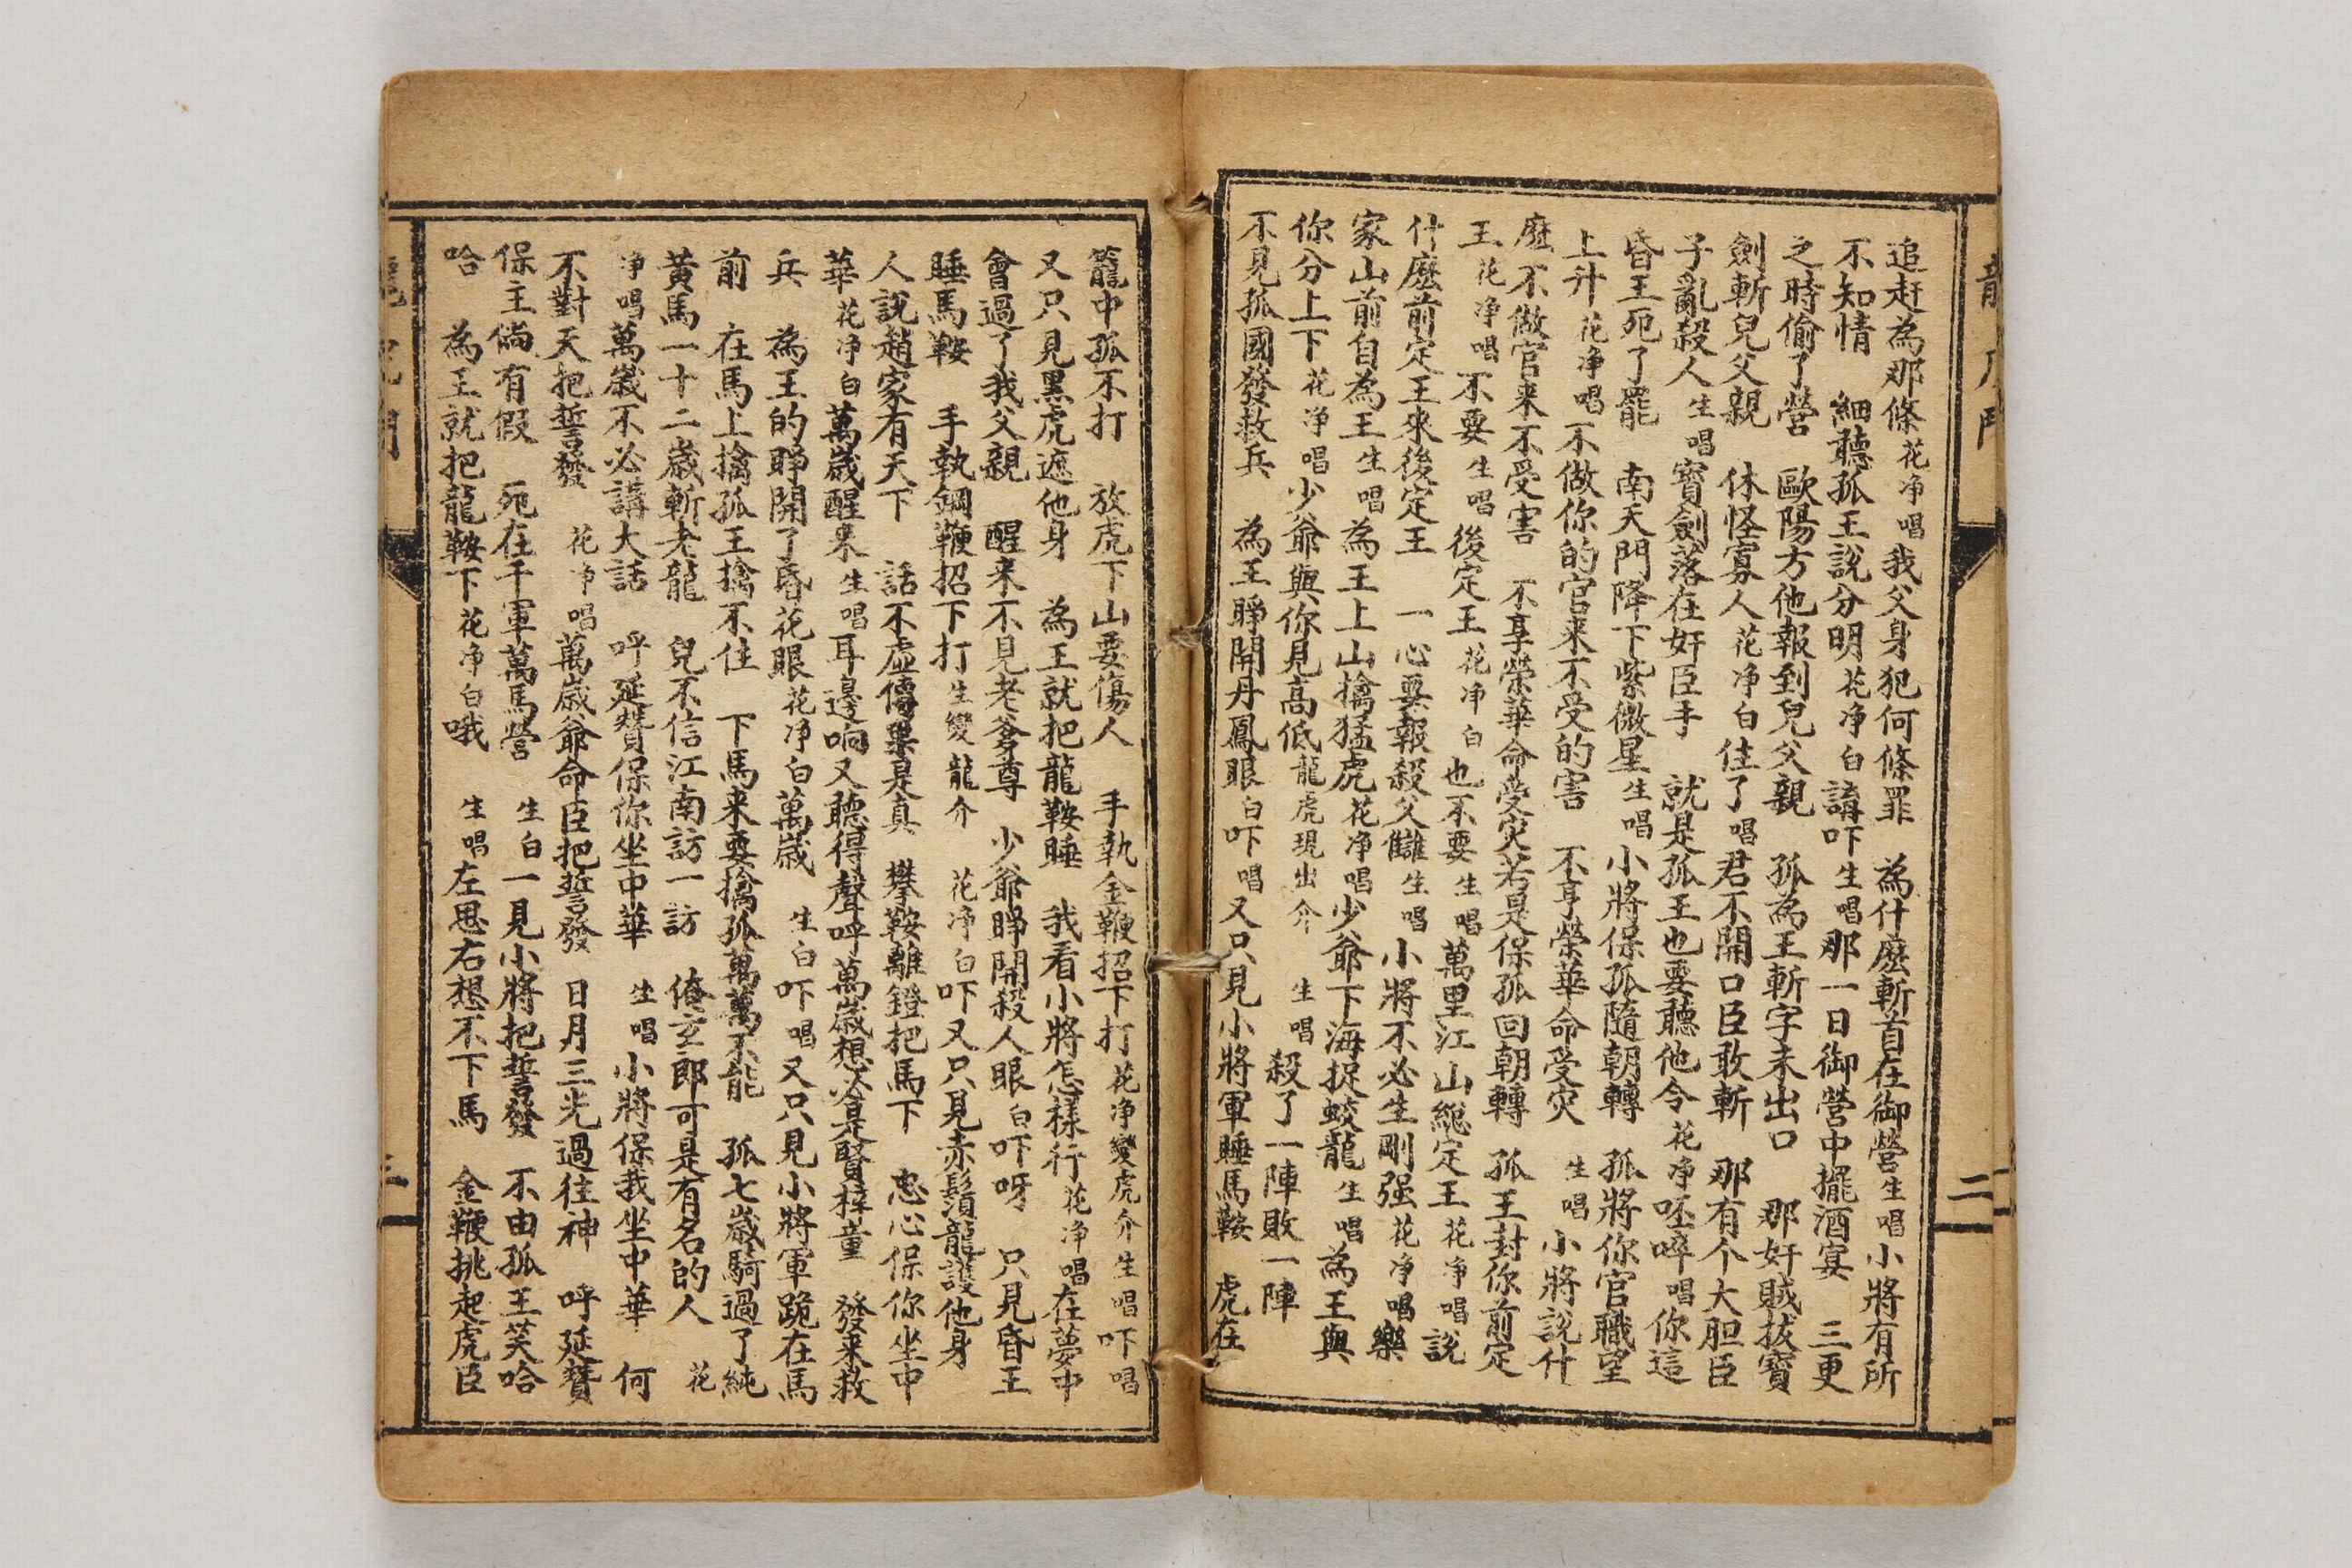 龍虎鬥
二
追赶為那條花净唱我父身犯何條罪 為什麽斬首在御營生唱小將有所
不知情 細聽孤王説分明花净白講吓生唱那一日御營中擺酒宴 三更
之時偷了營 歐陽方他報到兒父親 孤為王斬字未出口 那奸賊拔寶
劍斬兒父親 休怪寡人花净白住了唱君不開口臣敢斬 那有个大胆臣
子亂殺人生唱寳劍落在奸臣手 就是孤王也要聽他令花净呸啐唱你這
昏王死了罷 南天門降下紫微星生唱小將保孤隨朝轉 孤將你官職望
上升花净唱不做你的官来不受的害 不享榮華命受灾 生唱小將説什
麽不做官来不受害 不享榮華命受灾若是保孤回朝轉 孤王封你前定
王花净唱不要生唱後定王花净白也不要生唱萬里江山緫定王花净唱説
什麽前定王來後定王 一心要報殺父讎生唱小將不必生剛强花净唱樂
家山前自為王生唱為王上山擒猛虎花净唱少爺下海捉蛟龍生唱為王與
你分上下花净唱少爺與你見高低龍虎現出介 生唱殺了一陣敗一陣
不見孤國發救兵 為王睜開丹鳳眼白吓唱又只見小將軍睡馬鞍 虎在
籠中孤不打 放虎下山要傷人 手執金鞭招下打花净變虎介生唱吓唱
又只見黑虎遮他身 為王就把龍鞍睡 我看小將怎樣行花净唱在夢中
會過了我父親 醒来不見老爹尊 少爺睜開殺人眼白吓呀 只見昏王
睡馬鞍 手執鋼鞭招下打生變龍介 花净白吓又只見赤鬚龍護他身
人説趙家有天下 話不虚傳果是真 攀鞍離鐙把馬下 忠心保你坐中
華花净白萬歲醒来生唱耳邊响又聽得聲呼萬歲想必是賢梓童 發来救
兵 為王的睜開了昏花眼花净白萬歲 生白吓唱又只見小將軍跪在馬
前 在馬上擒孤王擒不住 下馬来要擒孤萬萬不能 孤七歲騎過了純
黃馬一十二歲斬老龍 兒不信江南訪一訪 俺玄郎可是有名的人 花
净唱萬歲不必講大話 呼延贊保你坐中華 生唱小將保我坐中華 何
不對天把誓發 花净唱萬歲爺命臣把誓發 日月三光過往神 呼延贊
保主倘有假 死在千軍萬馬營 生白一見小將把誓發 不由孤王笑哈
哈 為王就把龍鞍下花净白哦 生唱左思右想不下馬 金鞭挑起虎臣
龍虎鬥
三